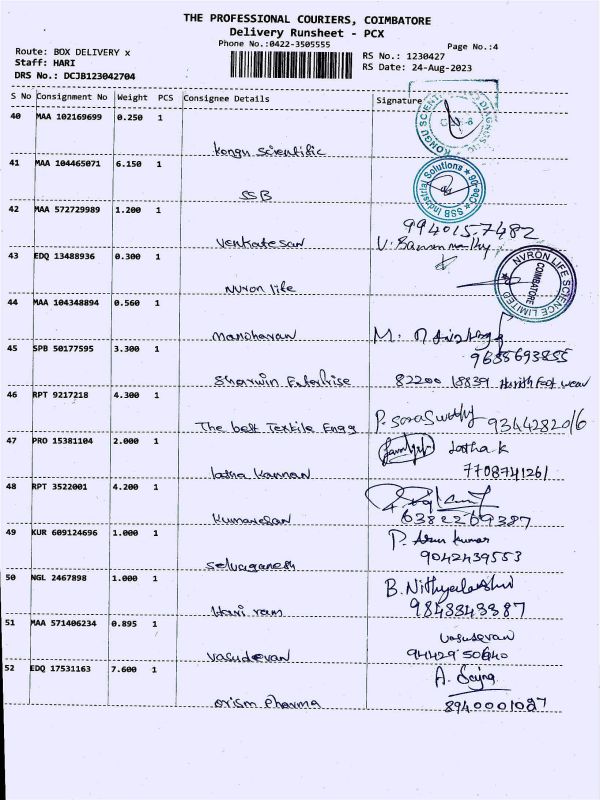 THE PROFESSIONAL COURIERS, COIMBATORE
Delivery Runsheet - PCX
Phone No.:0422-3505555
Page No.:4
Route: BOX DELIVERY x
Staff: HARI
DRS No.: DCJB123042704
RS No.: 1230427
RS Date: 24-Aug-2023
S No Consignment No Weight PCS Consignee Details Signature
40 MAA 102169699 0.250 1
Kongu Scientific
41 MAA 104465071 6.150 1
SSB
SSB Industrial Solutions
42 MAA 572729989 1.200 1
Venkatesan
994015 7482
43 EDQ 13488936 0.300 1
Nvron life
NVRON LIFE SCIENCE LIMITED
COIMBATORE
44 MAA 104348894 0.560 1
Manoharan
M.
9655693855
45 SPB 50177595 3.300 1
Sharwin Enterprise 82200 18839
46 RPT 9217218 4.300 1
The best Textile Engg P. Saraswathy 9344282016
47 PRO 15381104 2.000 1
latha Kannan
Latha K
7708741261
48 RPT 3522001 4.200 1
Kumaresan
6382269387
49 KUR 609124696 1.000 1
Selvaganesh
P. Arun kumar
9042439553
50 NGL 2467898 1.000 1
Hari ram
B.
9843843387
51 MAA 571406234 0.895 1
Vasudevan
Vasudevan
94429 50640
52 EDQ 17531163 7.600 1
Orism Pharma
A.
8940001087